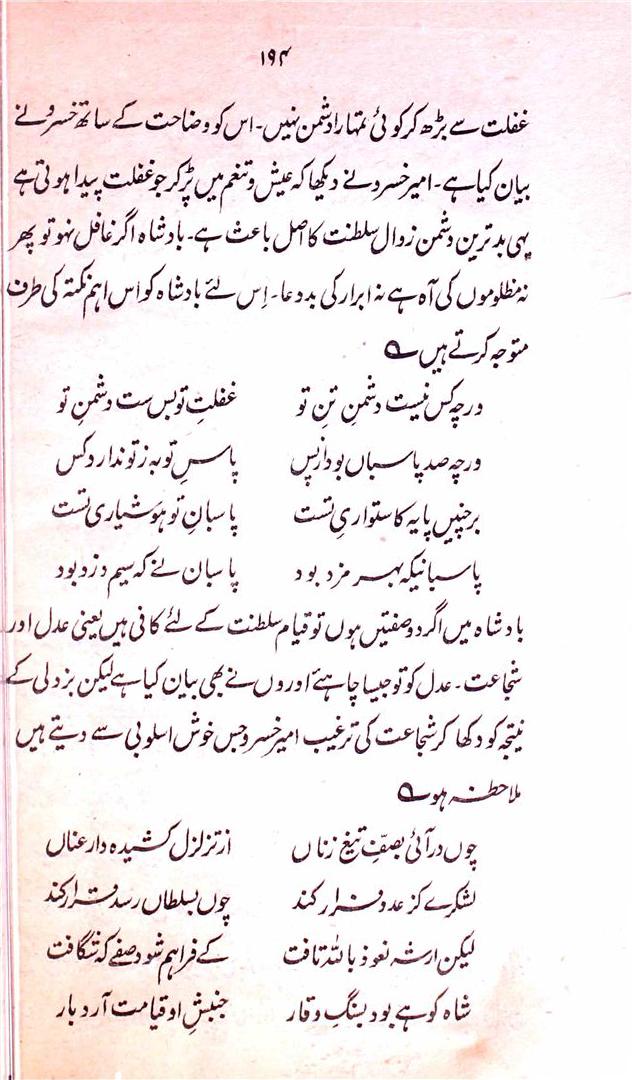 ۱۹۴
غفلت سے بڑھ کر کوئی تمہارا دشمن نہیں۔ اس کو وضاحت کے ساتھ خسرو نے
بیان کیا ہے۔ امیر خسرو نے دیکھا کہ عیش و تنعم میں پڑ کر جو غفلت پیدا ہوتی ہے
یہی بدترین دشمن زوال سلطنت کا اصل باعث ہے۔ بادشاہ اگر غافل نہو تو پھر
نہ مظلوموں کی آہ ہے نہ ابرار کی بددعا۔ اِس لئے بادشاہ کو اس اہم نکتہ کی طرف
متوجہ کرتے ہیں ؎
ورچہ کس نیست دشمنِ تنِ تو غفلتِ تو بس ست دشمنِ تو
ورچہ صد پاسباں بود ازپس پاسِ تو بہ ز تو ندارد کس
برچنیں پایہ کاستواریِ تست پاسبانِ تو ہوشیاری تست
پاسبانیکہ بہر مزد بود پاسبان نے کہ سیم دزد بود
بادشاہ میں اگر دو صفتیں ہوں تو قیام سلطنت کے لئے کافی ہیں یعنی عدل اور
شجاعت۔ عدل کو تو جیسا چاہئے اوروں نے بھی بیان کیا ہے لیکن بزدلی کے
نتیجہ کو دکھا کر شجاعت کی ترغیب امیر خسرو جس خوش اسلوبی سے دیتے ہیں
ملاحظہ ہو ؎
چوں درآئی بصفِّ تیغ زناں از تزلزل کشیدہ دار عناں
لشکرے کز عدو فرار کند چوں بسلطاں رسد قرار کند
لیکن ار شہ نعوذ باللہ تافت کے فراہم شود صفے کہ شگافت
شاہ کوہے بود بسنگِ وقار جنبشِ او قیامت آرد بار